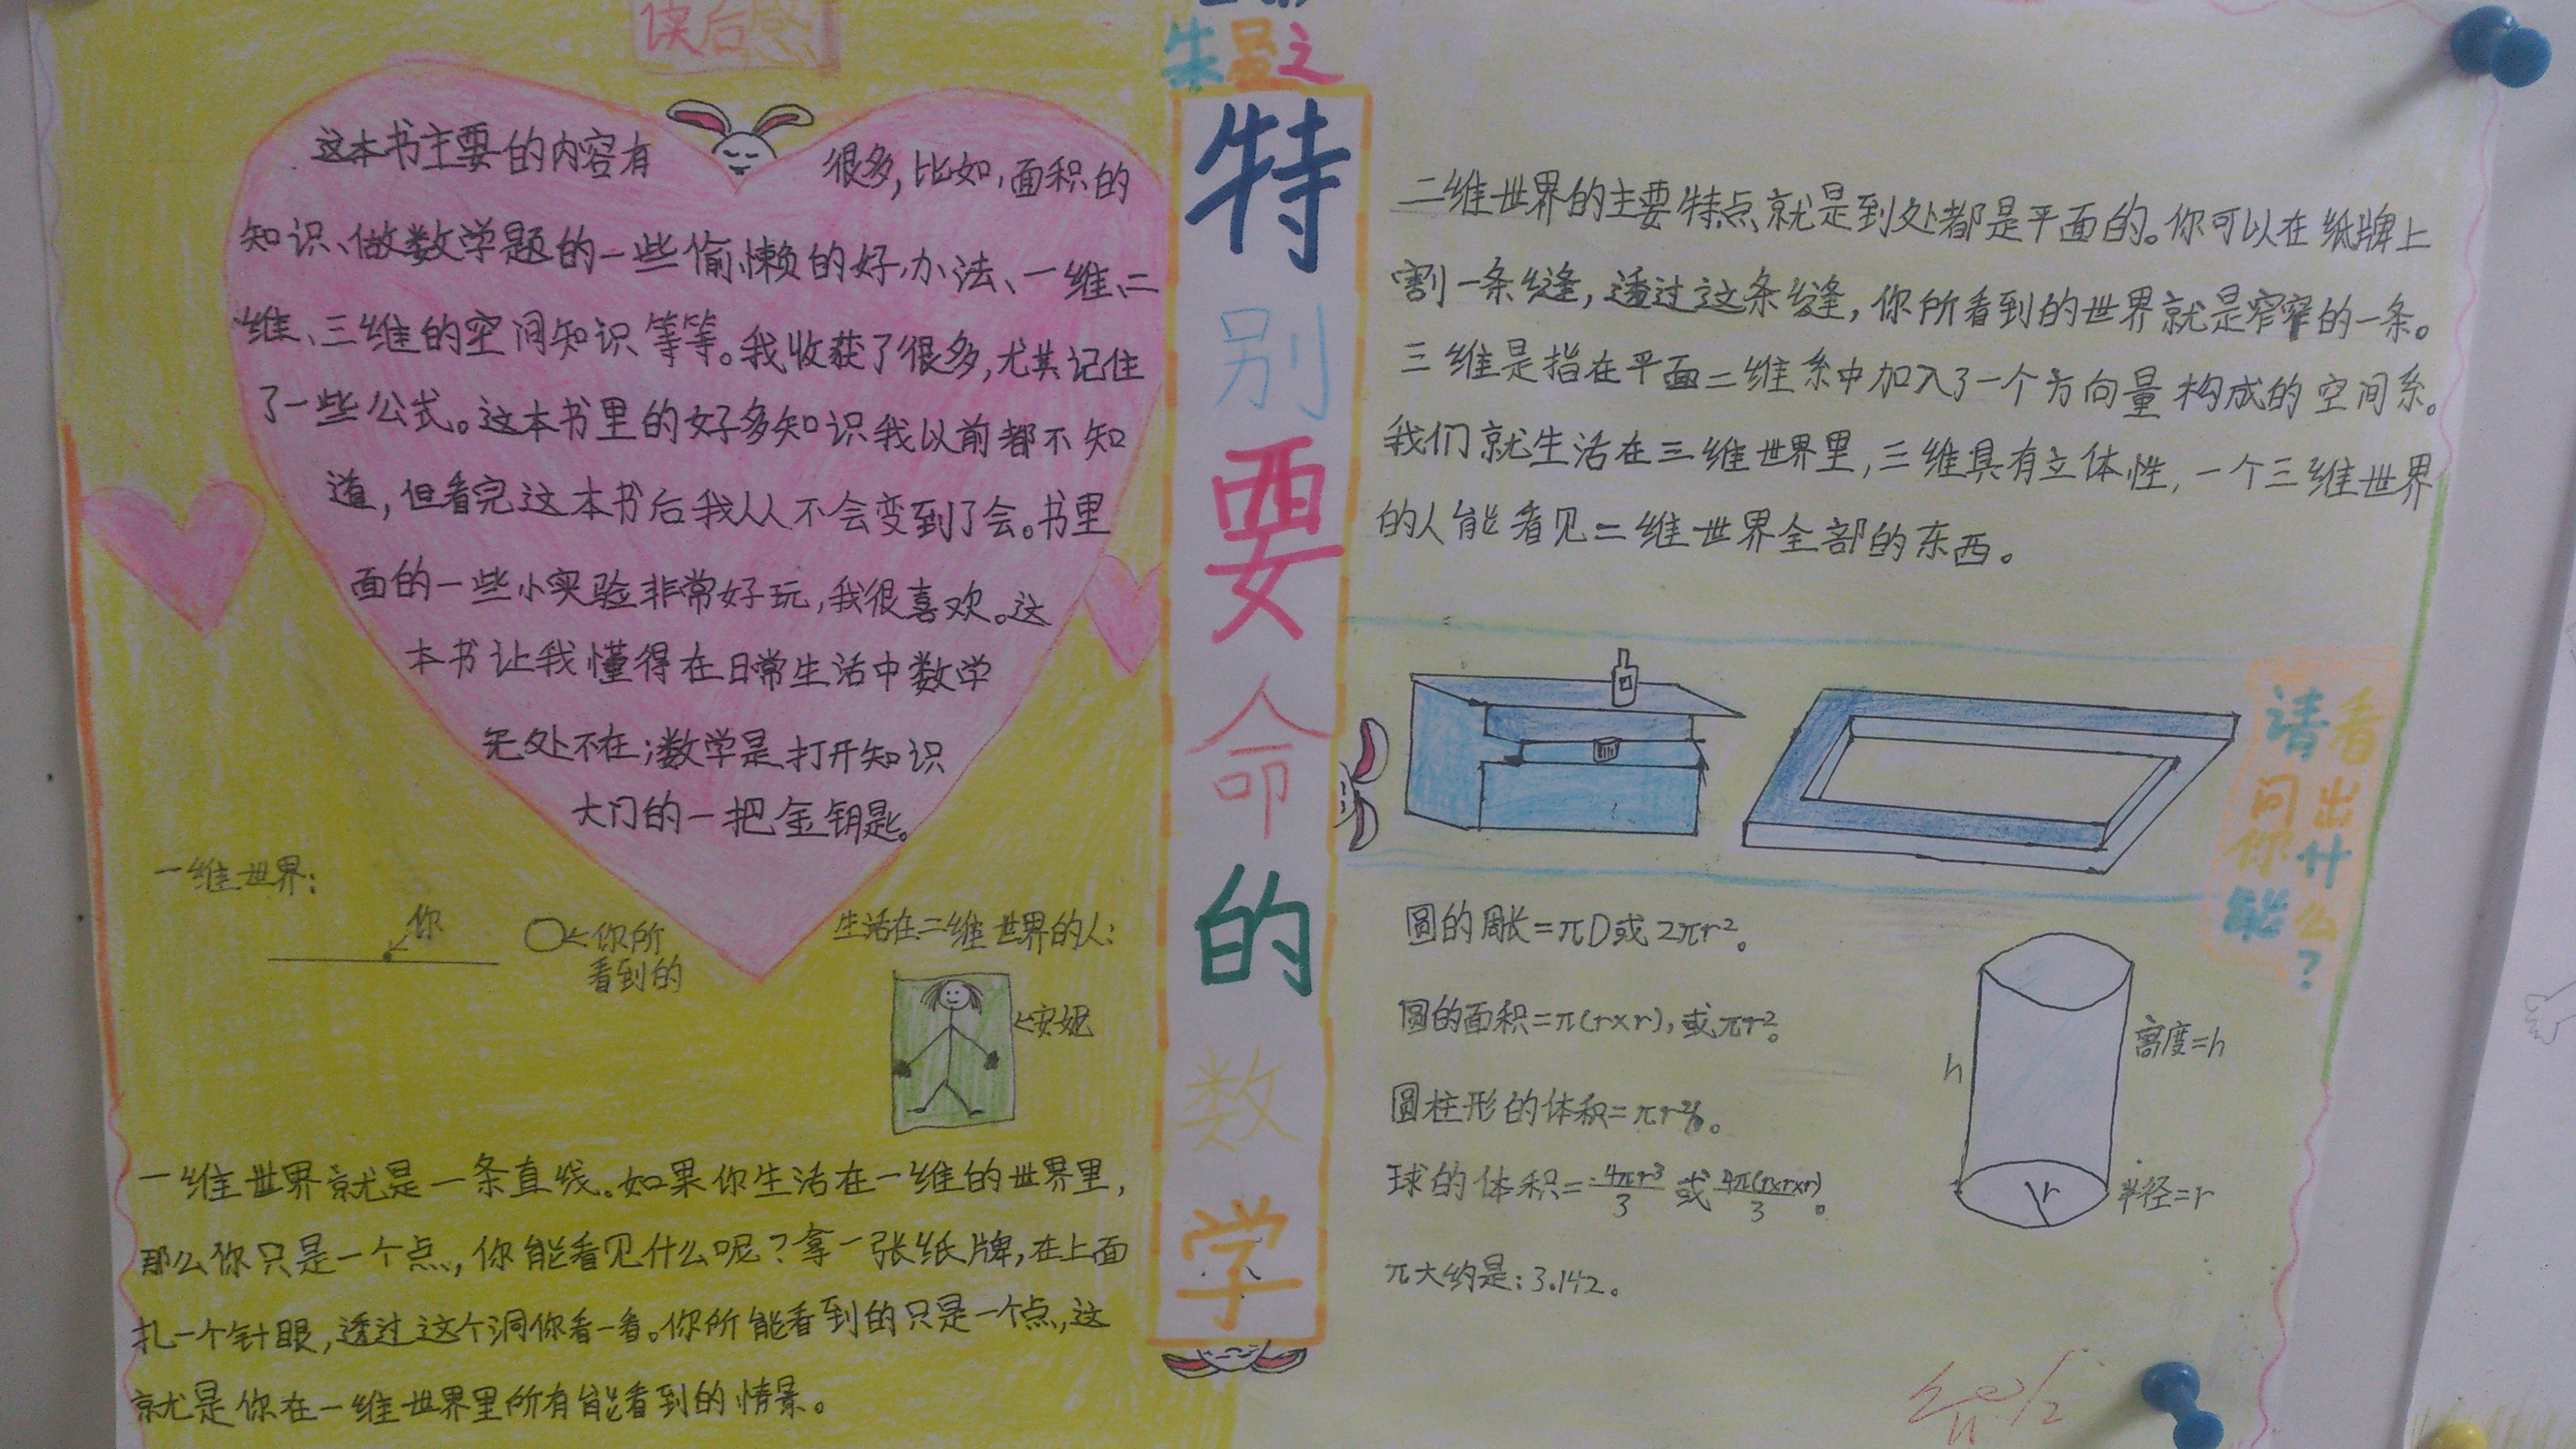 读后感
这本书主要的内容有很多,比如,面积的
知识、做数学题的一些偷懒的好办法、一维、二
维、三维的空间知识等等。我收获了很多,尤其记住
了一些公式。这本书里的好多知识我以前都不知
道,但看完这本书后我从不会变到了会。书里
面的一些小实验非常好玩,我很喜欢。这
本书让我懂得在日常生活中数学
无处不在;数学是打开知识
大门的一把金钥匙。
一维世界:
你
你所
看到的
生活在二维世界的人:
安妮
一维世界就是一条直线。如果你生活在一维的世界里,
那么你只是一个点,你能看见什么呢?拿一张纸牌,在上面
扎一个针眼,透过这个洞你看一看。你所能看到的只是一个点,这
就是你在一维世界里所有能看到的情景。
之
特别要命的数学
二维世界的主要特点就是到处都是平面的。你可以在纸牌上
割一条缝,透过这条缝,你所看到的世界就是窄窄的一条。
三维是指在平面二维系中加入了一个方向量构成的空间系。
我们就生活在三维世界里,三维具有立体性,一个三维世界
的人能看见二维世界全部的东西。
请问你能
看出什么?
圆的周长=πD或2πr²。
圆的面积=π(r×r),或πr²。
圆柱形的体积=πr²h。
球的体积=4πr³/3 或 4π(r×r×r)/3。
π大约是:3.142。
h
高度=h
r
半径=r